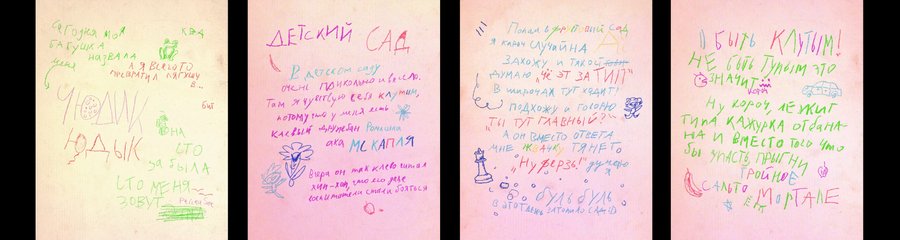 сагодня моя
бабушка
назвала
меня
ква
а я всего то
превратил лягушку
в...
ЧЮДИ
ЮДЫК
она
сто
забыла
сто меня
зовут
ДЕТСКИЙ САД
В детском саду
очень прикольно и весело.
Там я чувствую себя клутым,
потому что у меня есть
клёвый дружбан Ромашка
aka МС КАПЛЯ
Вчера он так клёво читал
хип-хоп, что его даже
воспитатели стали бояться
Попал в ядровый сад
я кароч случайна
захожу и такой
думаю „ЧЁ ЭТ ЗА ТИП"
В шнрочах тут ходит!
подхожу и говорю
„ТЫ ТУТ ГЛАВНЫЙ?"
А он вместо ответа
мне жвачку тянет
„Ну ферзь!" думаю
я
буль буль
в этот день затопило сад
БЫТЬ КЛУТЫМ!
НЕ БЫТЬ ТУПЫМ ЭТО
ЗНАЧИТ
короч
Ну короч, лежит
типа кажурка отбана-
на и вместо того что
бы упасть прыгни
тройное
сальто мортале